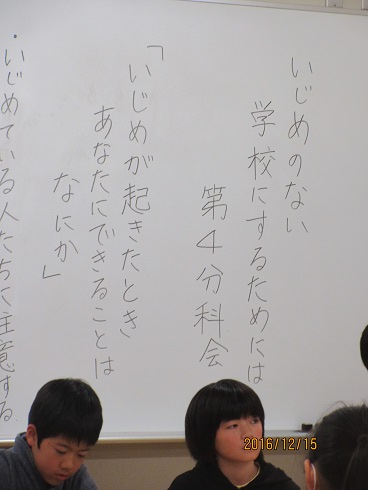 いじめのない
学校にするためには
第4分科会
「いじめが起きたとき
あなたにできることは
なにか」
・いじめている人たちに注意する
2016/12/15